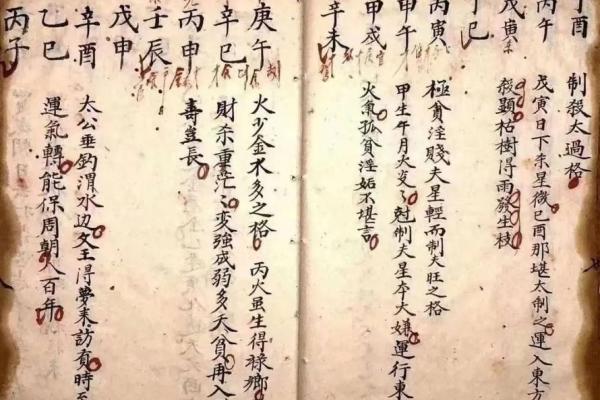 丁酉
制殺太過格
丙午
戊寅日下朱星微己酉那堪太制之運入東方
戊寅
殺顯枯樹得雨發生枝
丁巳
丙寅
極貧淫賤夫星輕而制夫旺之格
甲午
甲生午月火炎々尅制夫星本大嫌運行東
甲戌
火氣孤貧淫妬不堪言
辛未
庚午
火少金水多之格 丙火虽生得祿鄉
辛巳
財杀重茫々変強成弱多夭貧再入
丙申
壽豈長
壬辰
戊申
太公垂釣渭水边文王得夢来訪賢時至
辛酉
運氣轉能保周朝八百年
乙巳
丙子